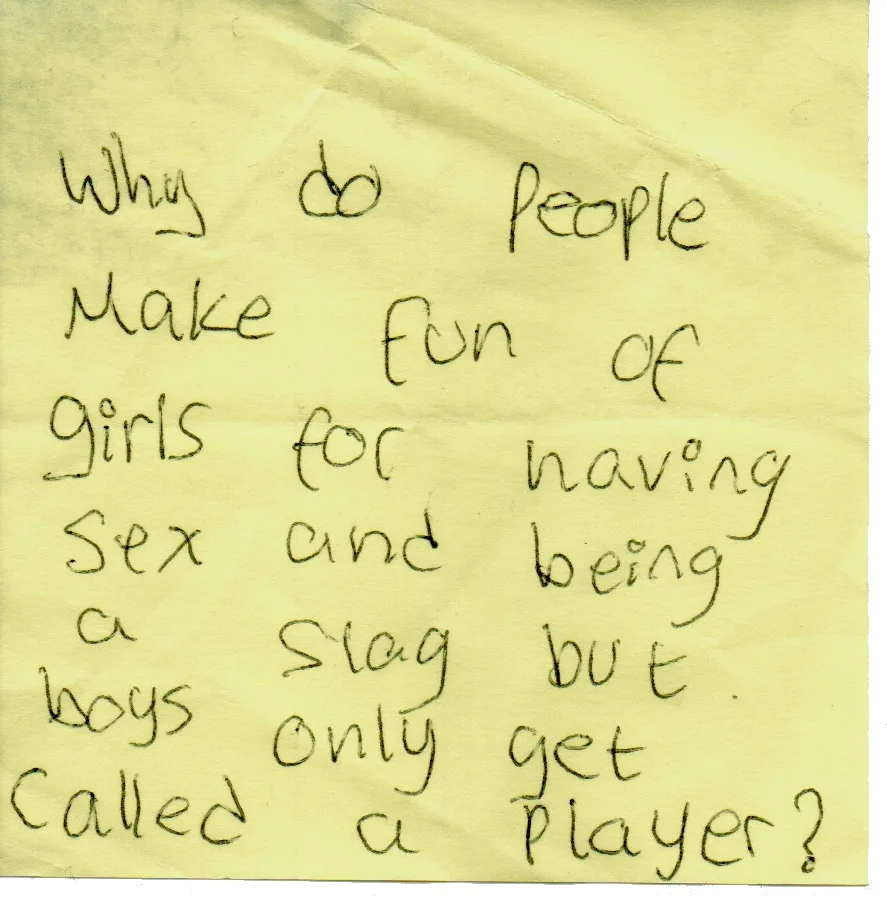 Why do People
Make fun of
girls for having
Sex and being
a Slag but
boys only get
Called a Player?